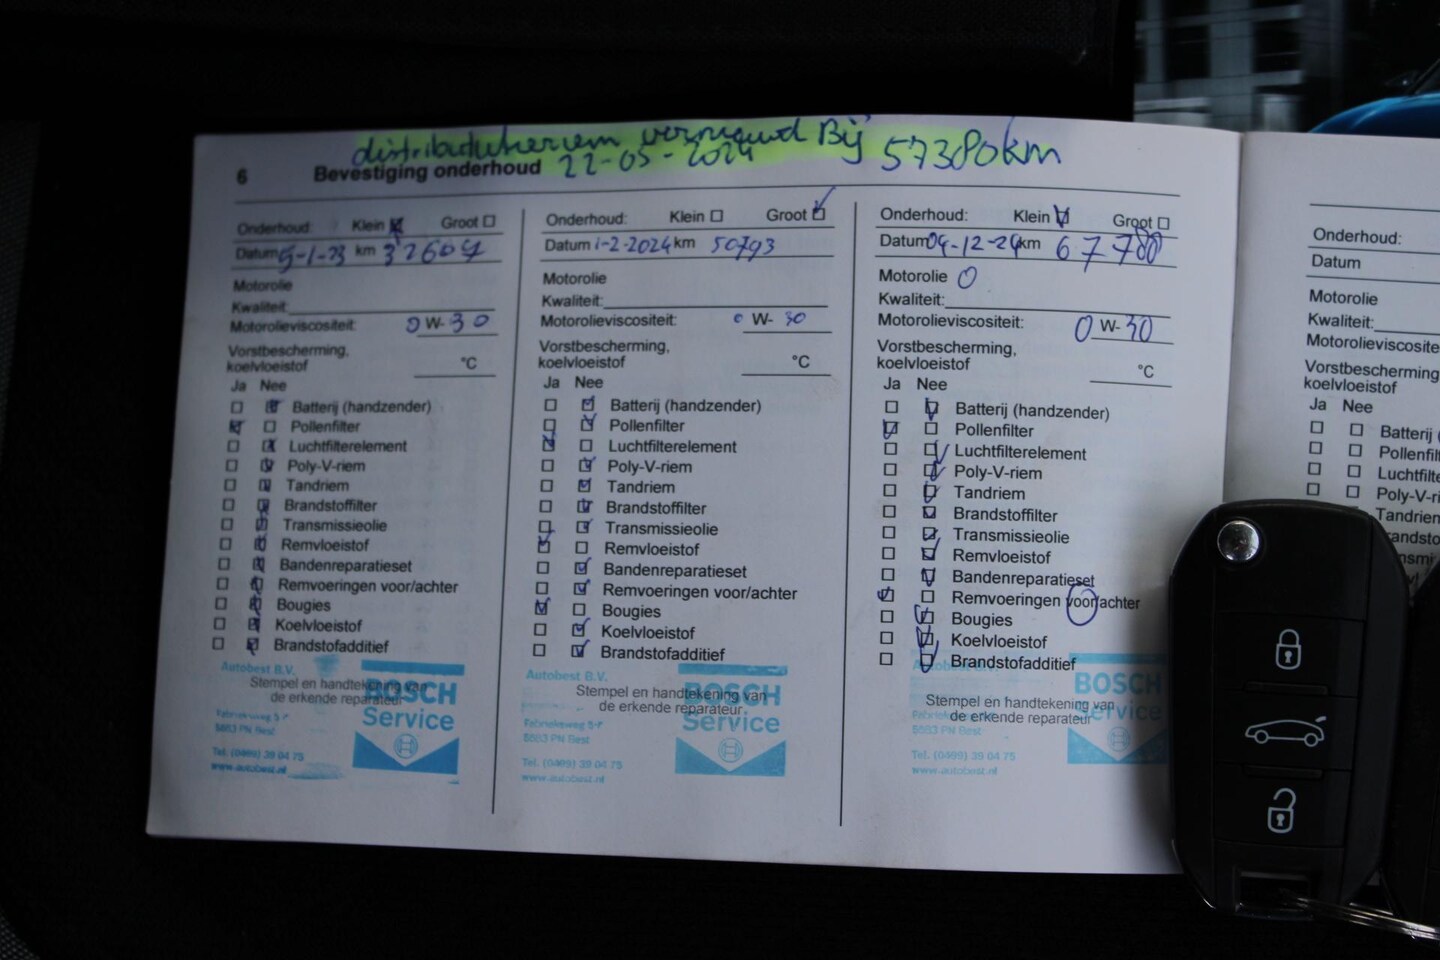 distributieriem vernieuwd Bij 57380km
22-05-2024
6 Bevestiging onderhoud
Onderhoud: Klein Groot
Datum 5-1-23 km 32607
Motorolie
Kwaliteit:
Motorolieviscositeit: 0 W- 30
Vorstbescherming,
koelvloeistof °C
Ja Nee
Batterij (handzender)
Pollenfilter
Luchtfilterelement
Poly-V-riem
Tandriem
Brandstoffilter
Transmissieolie
Remvloeistof
Bandenreparatieset
Remvoeringen voor/achter
Bougies
Koelvloeistof
Brandstofadditief
Autobest B.V.
Stempel en handtekening van
de erkende reparateur
BOSCH
Service
Fabrieksweg 5-r
5683 PN Best
Tel. (0499) 39 04 75
www.autobest.nl
Onderhoud: Klein Groot
Datum 1-2-2024 km 50793
Motorolie
Kwaliteit:
Motorolieviscositeit: 0 W- 30
Vorstbescherming,
koelvloeistof °C
Ja Nee
Batterij (handzender)
Pollenfilter
Luchtfilterelement
Poly-V-riem
Tandriem
Brandstoffilter
Transmissieolie
Remvloeistof
Bandenreparatieset
Remvoeringen voor/achter
Bougies
Koelvloeistof
Brandstofadditief
Autobest B.V.
Stempel en handtekening van
de erkende reparateur
BOSCH
Service
Fabrieksweg 5-r
5683 PN Best
Tel. (0499) 39 04 75
www.autobest.nl
Onderhoud: Klein Groot
Datum 04-12-24 km 67780
Motorolie 0
Kwaliteit:
Motorolieviscositeit: 0 W- 30
Vorstbescherming,
koelvloeistof °C
Ja Nee
Batterij (handzender)
Pollenfilter
Luchtfilterelement
Poly-V-riem
Tandriem
Brandstoffilter
Transmissieolie
Remvloeistof
Bandenreparatieset
Remvoeringen voor/achter
Bougies
Koelvloeistof
Brandstofadditief
Autobest
BOSCH
Service
Stempel en handtekening van
de erkende reparateur
5683 PN Best
Tel. (0499) 39 04 75
www.autobest.nl
Onderhoud:
Datum
Motorolie
Kwaliteit:
Motorolieviscosite
Vorstbescherming
koelvloeistof
Ja Nee
Batterij
Pollenfil
Luchtfil
Poly-V-ri
Tandriem